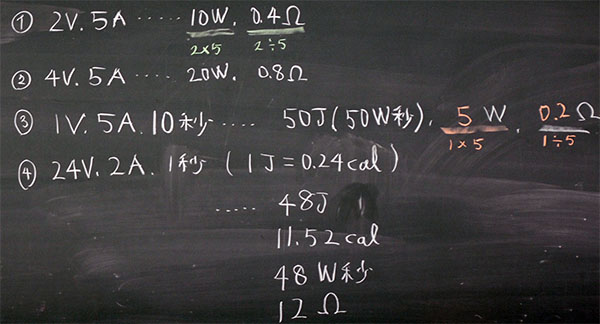 ① 2V. 5A ····· 10W. 0.4Ω
2×5 2÷5
② 4V. 5A ····· 20W. 0.8Ω
③ 1V. 5A. 10秒 ····· 50J(50W秒). 5W. 0.2Ω
1×5 1÷5
④ 24V. 2A. 1秒 (1J=0.24cal)
····· 48J
11.52cal
48W秒
12Ω